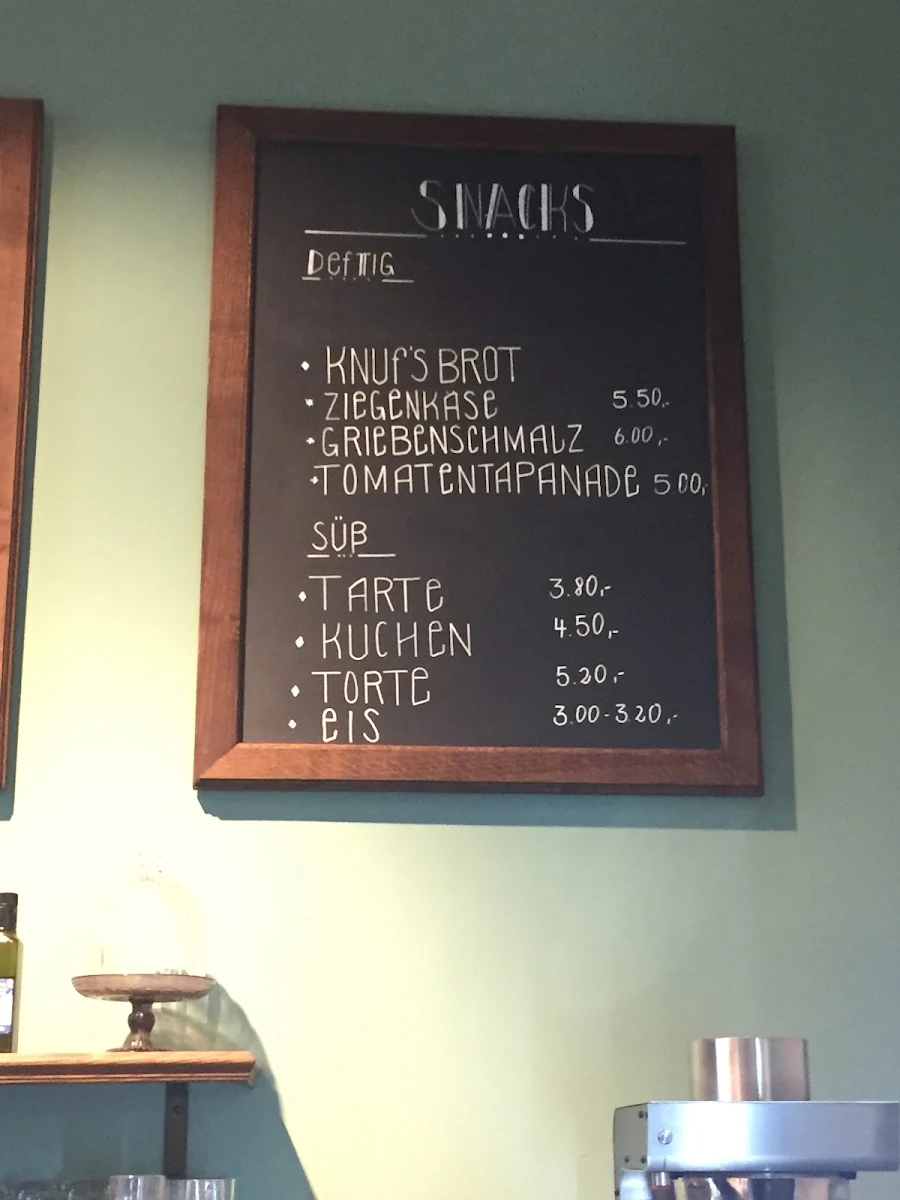 SNACKS
DefTIG
• KNUf'S BROT
• ZIEGENKASE 5.50,-
• GRIEBENSCHMALZ 6.00,-
• TOMATENTAPANADE 5.00,
SÜß
• TARTE 3.80,-
• KUCHEN 4.50,-
• TORTE 5.20,-
• EIS 3.00-3.20,-